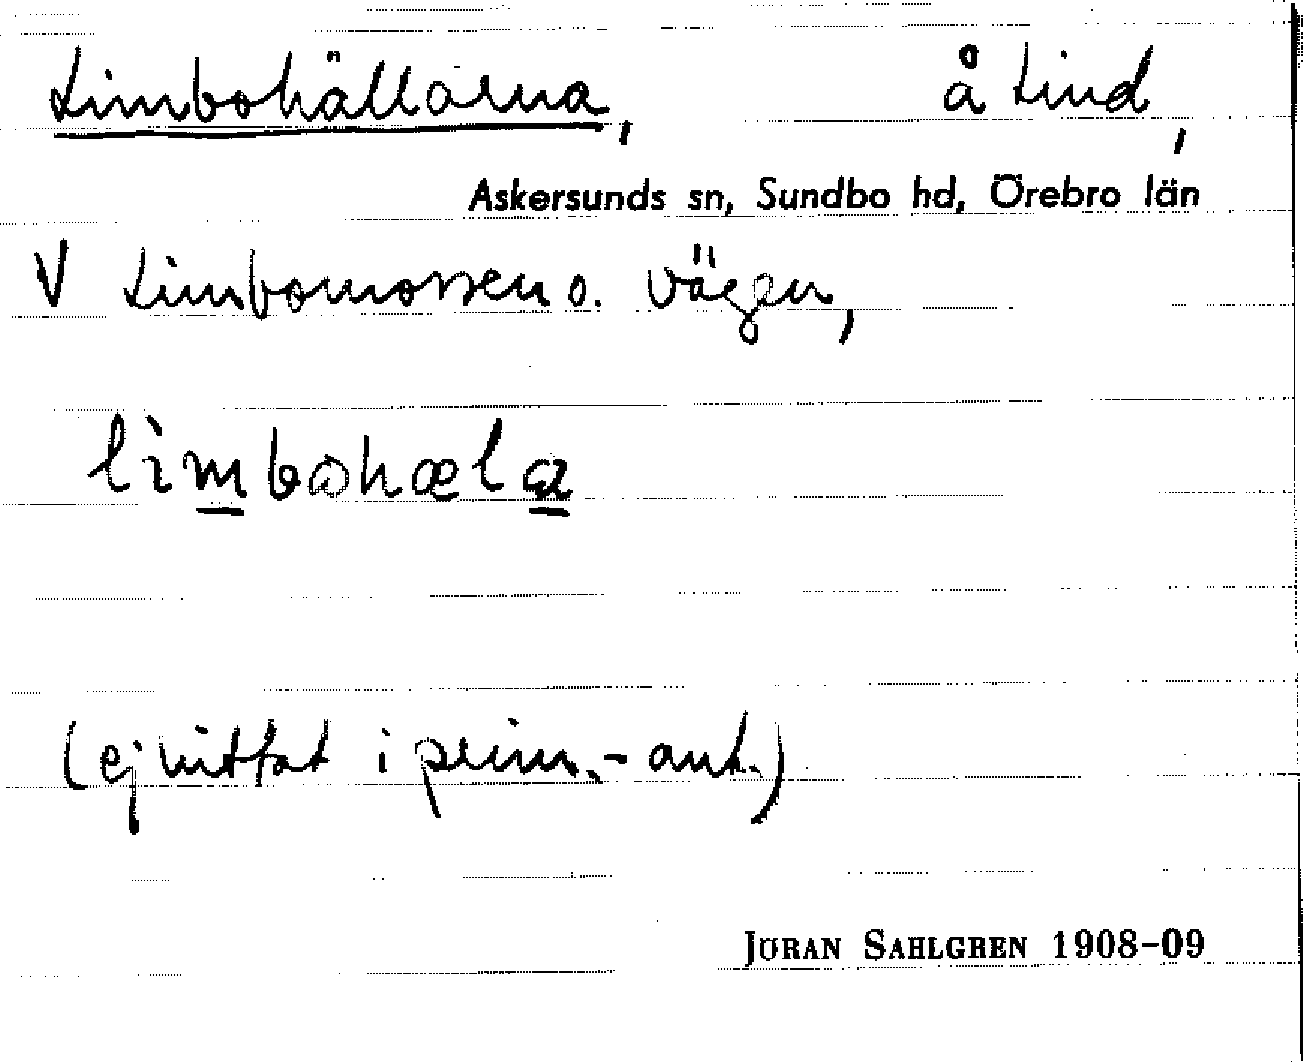 Limbohällarna, å Lind,
Askersunds sn, Sundbo hd, Örebro län
V Limbomossen o. vägen,
lìmbohæla
(ej hittat i prim.-ant.)
JÖRAN SAHLGREN 1908-09